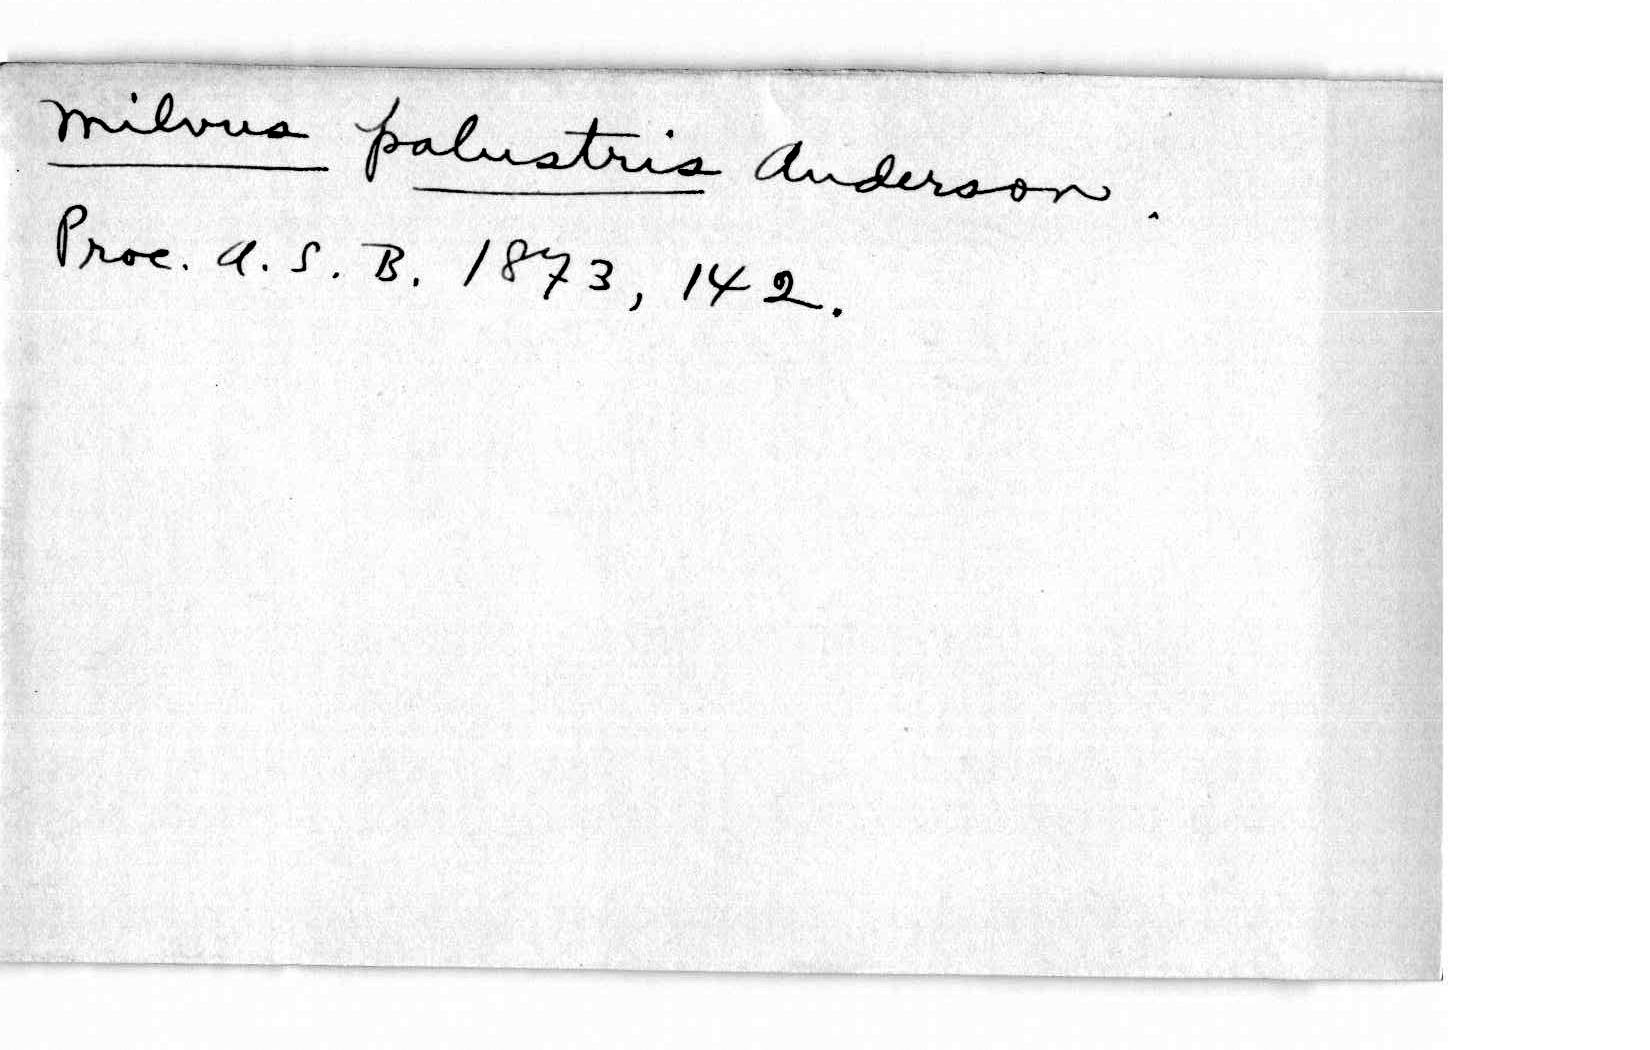 Milvus palustris Anderson.
Proc. A. S. B. 1873, 142.